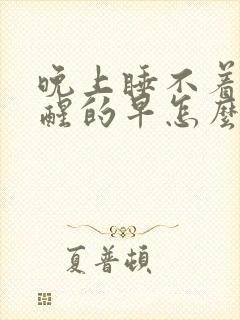 晚上睡不着
醒的早怎麼
夏普頓